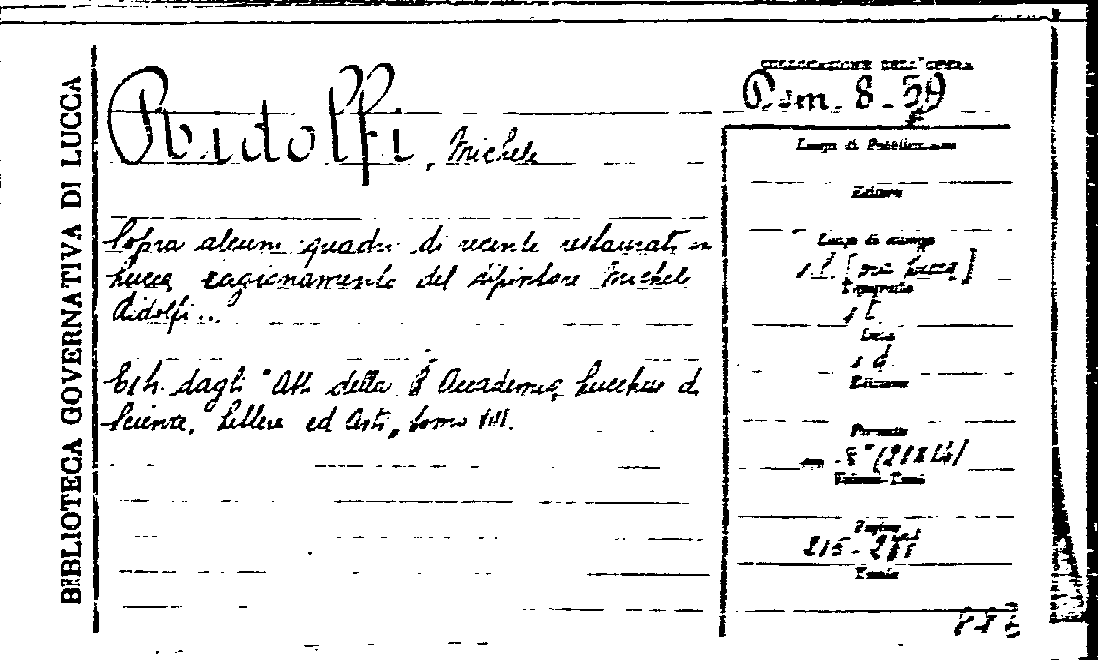 BIBLIOTECA GOVERNATIVA DI LUCCA
Ridolfi, Michele
Sopra alcuni quadri di recente restaurati in
Lucca ragionamento del dipintore Michele
Ridolfi...
Estr. dagli "Atti della R. Accademia Lucchese di
Scienze, Lettere ed Arti, tomo VIII.
COLLOCAZIONE DELL'OPERA
Dom. 8-59
Luogo di Pubblicazione
Editore
Luogo di stampa
s.l. [ma Lucca]
Tipografia
s t
Data
s d
Edizione
Formato
in-8° (21x14)
Volumi-Tomi
Pagine
215-
Tavole